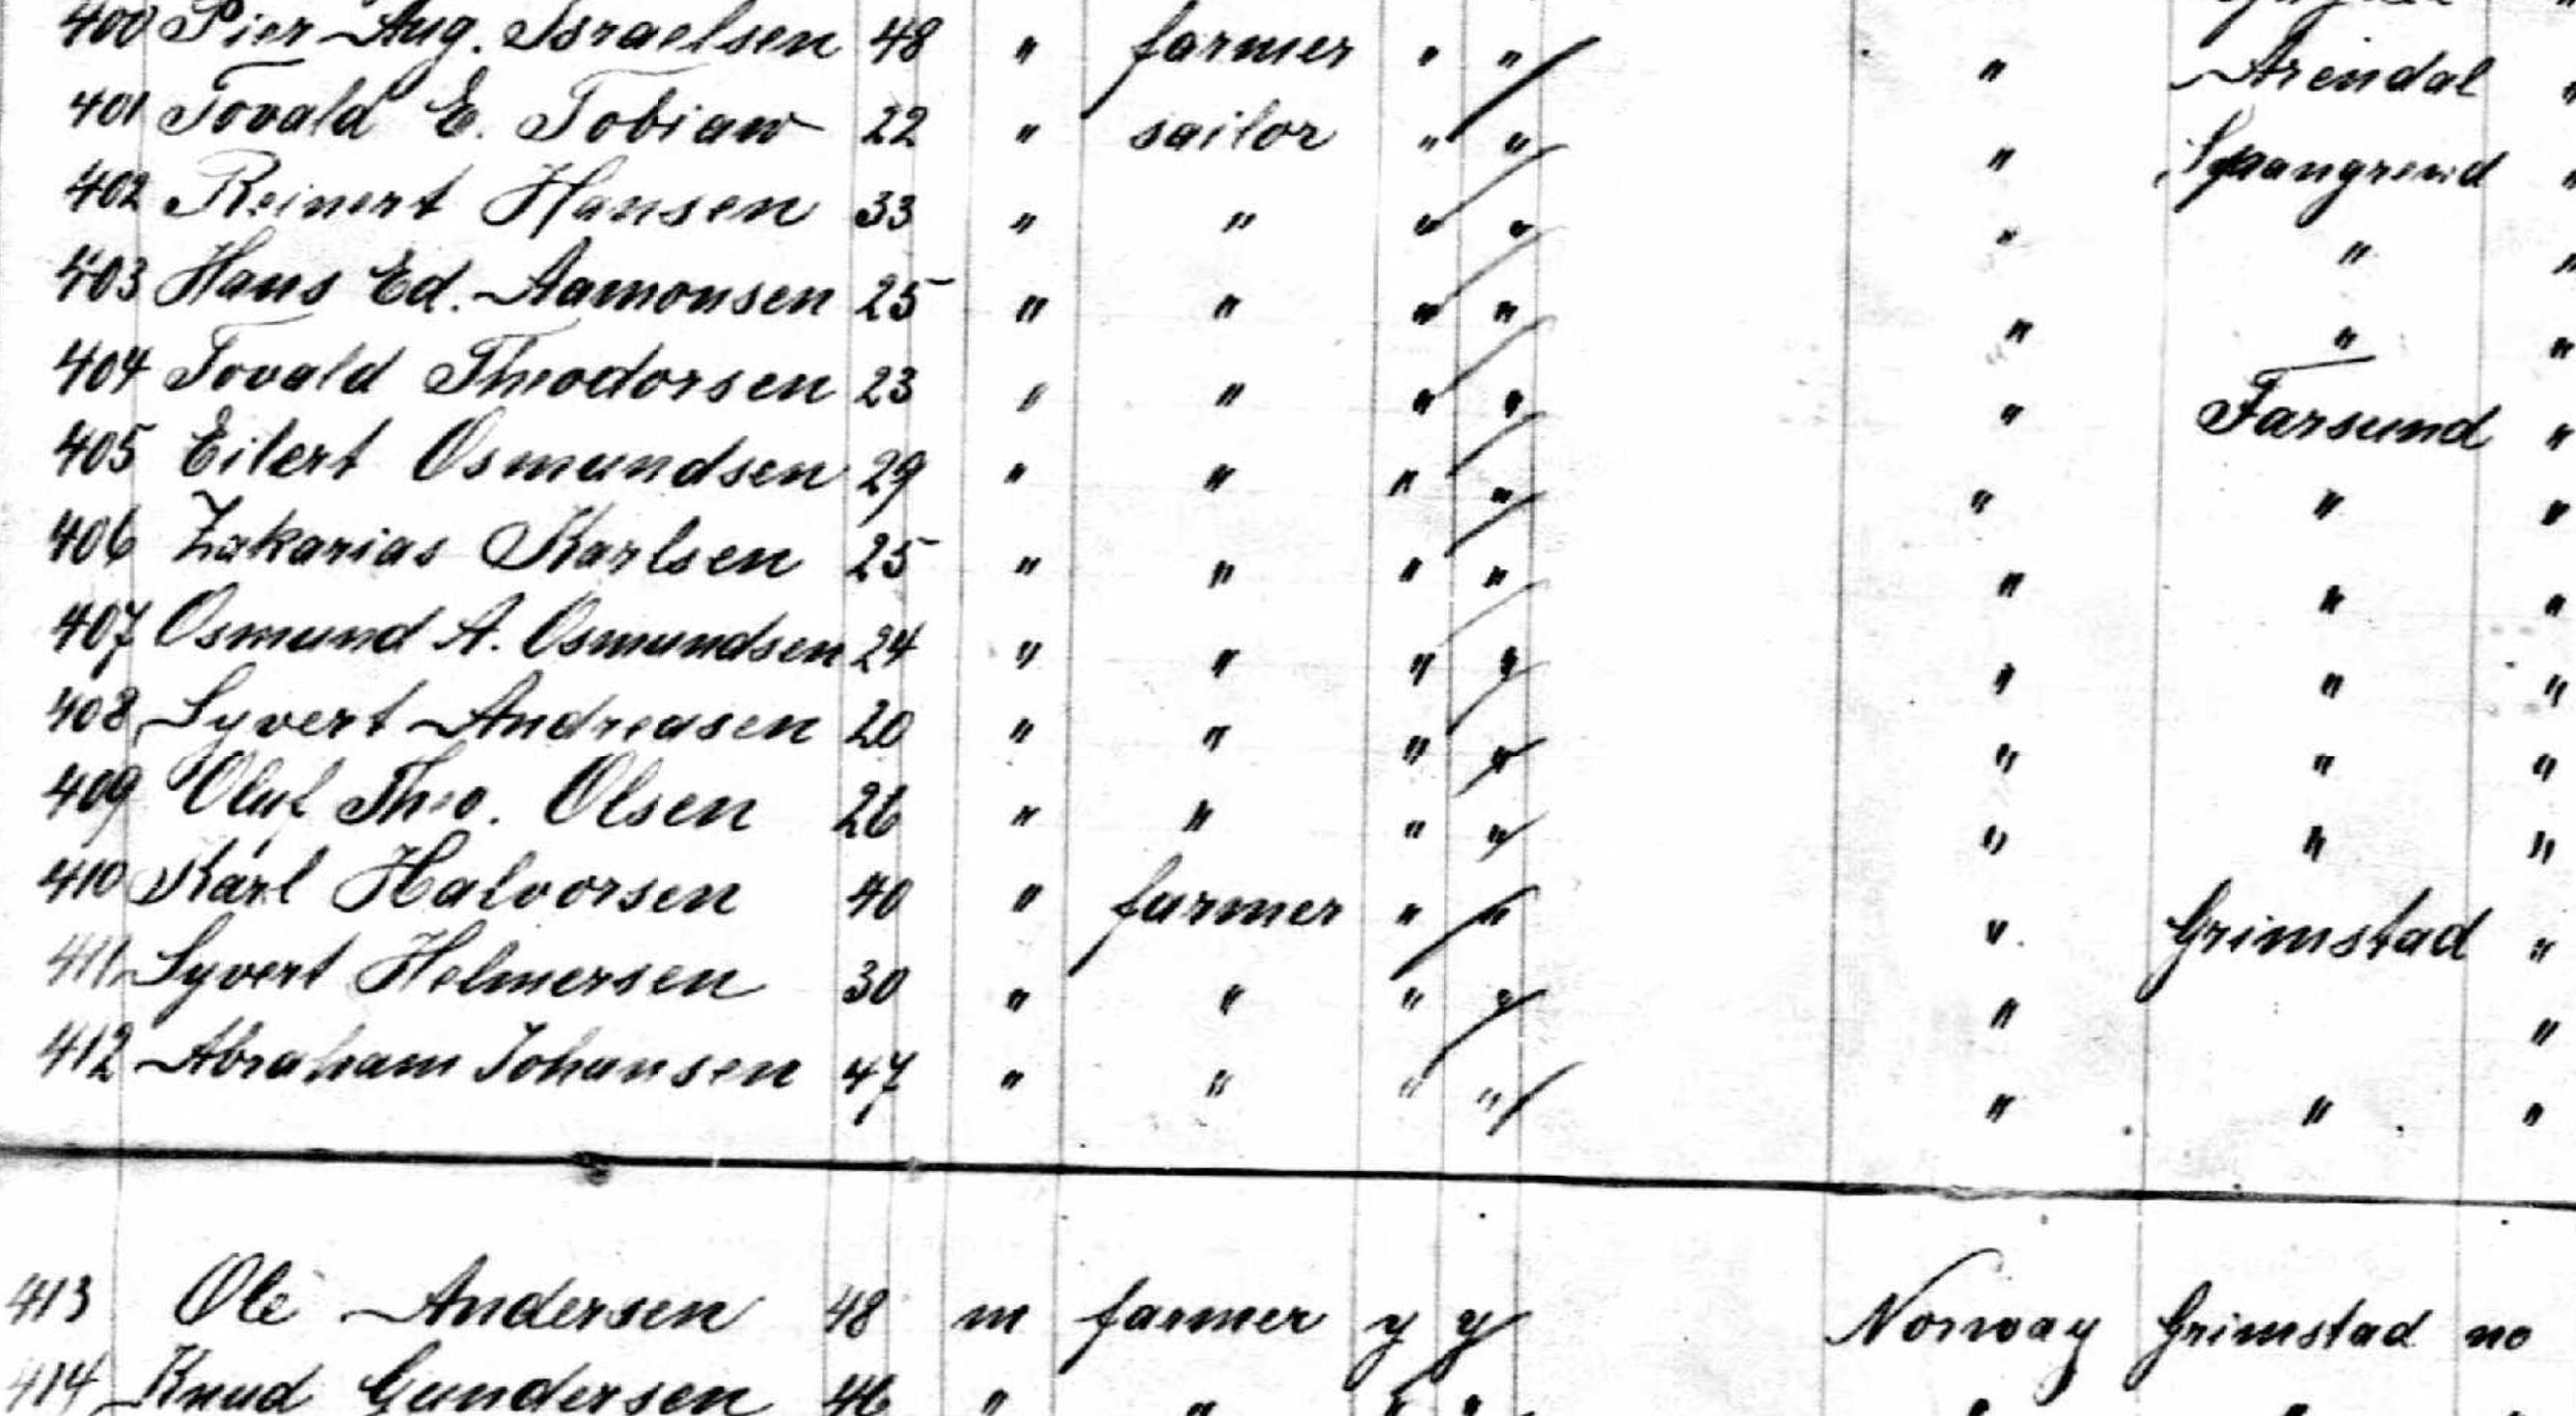 400 Pier Aug. Israelsen 48 " farmer " " " Arendal "
401 Tovald E. Tobiaw 22 " sailor " " " Spangreid "
402 Reinert Hansen 33 " " " " " " "
403 Hans Ed. Aamonsen 25 " " " " " " "
404 Tovald Theodorsen 23 " " " " " Farsund "
405 Eilert Osmundsen 29 " " " " " " "
406 Zakarias Karlsen 25 " " " " " " "
407 Osmund A. Osmundsen 24 " " " " " " "
408 Syvert Andreasen 20 " " " " " " "
409 Oluf Theo. Olsen 26 " " " " " " "
410 Karl Halvorsen 40 " farmer " " " Grimstad "
411 Syvert Helmersen 30 " " " " " "
412 Abraham Johansen 47 " " " " " " "
413 Ole Andersen 48 m farmer y y Norway Grimstad no
414 Knud Gundersen 46 " " " " " "